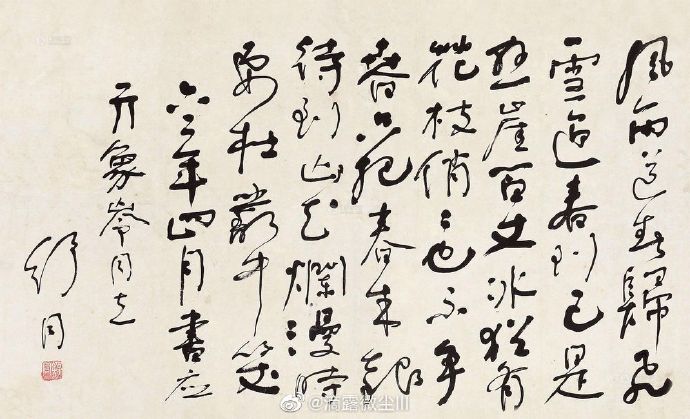 風雨送春歸飛
雪迎春到已是
懸崖百丈冰猶有
花枝俏〻也不争
春只把春來報
待到山花爛漫時
在叢中笑
年四月書应
亓象岑同志
舒同
@滴露微尘川